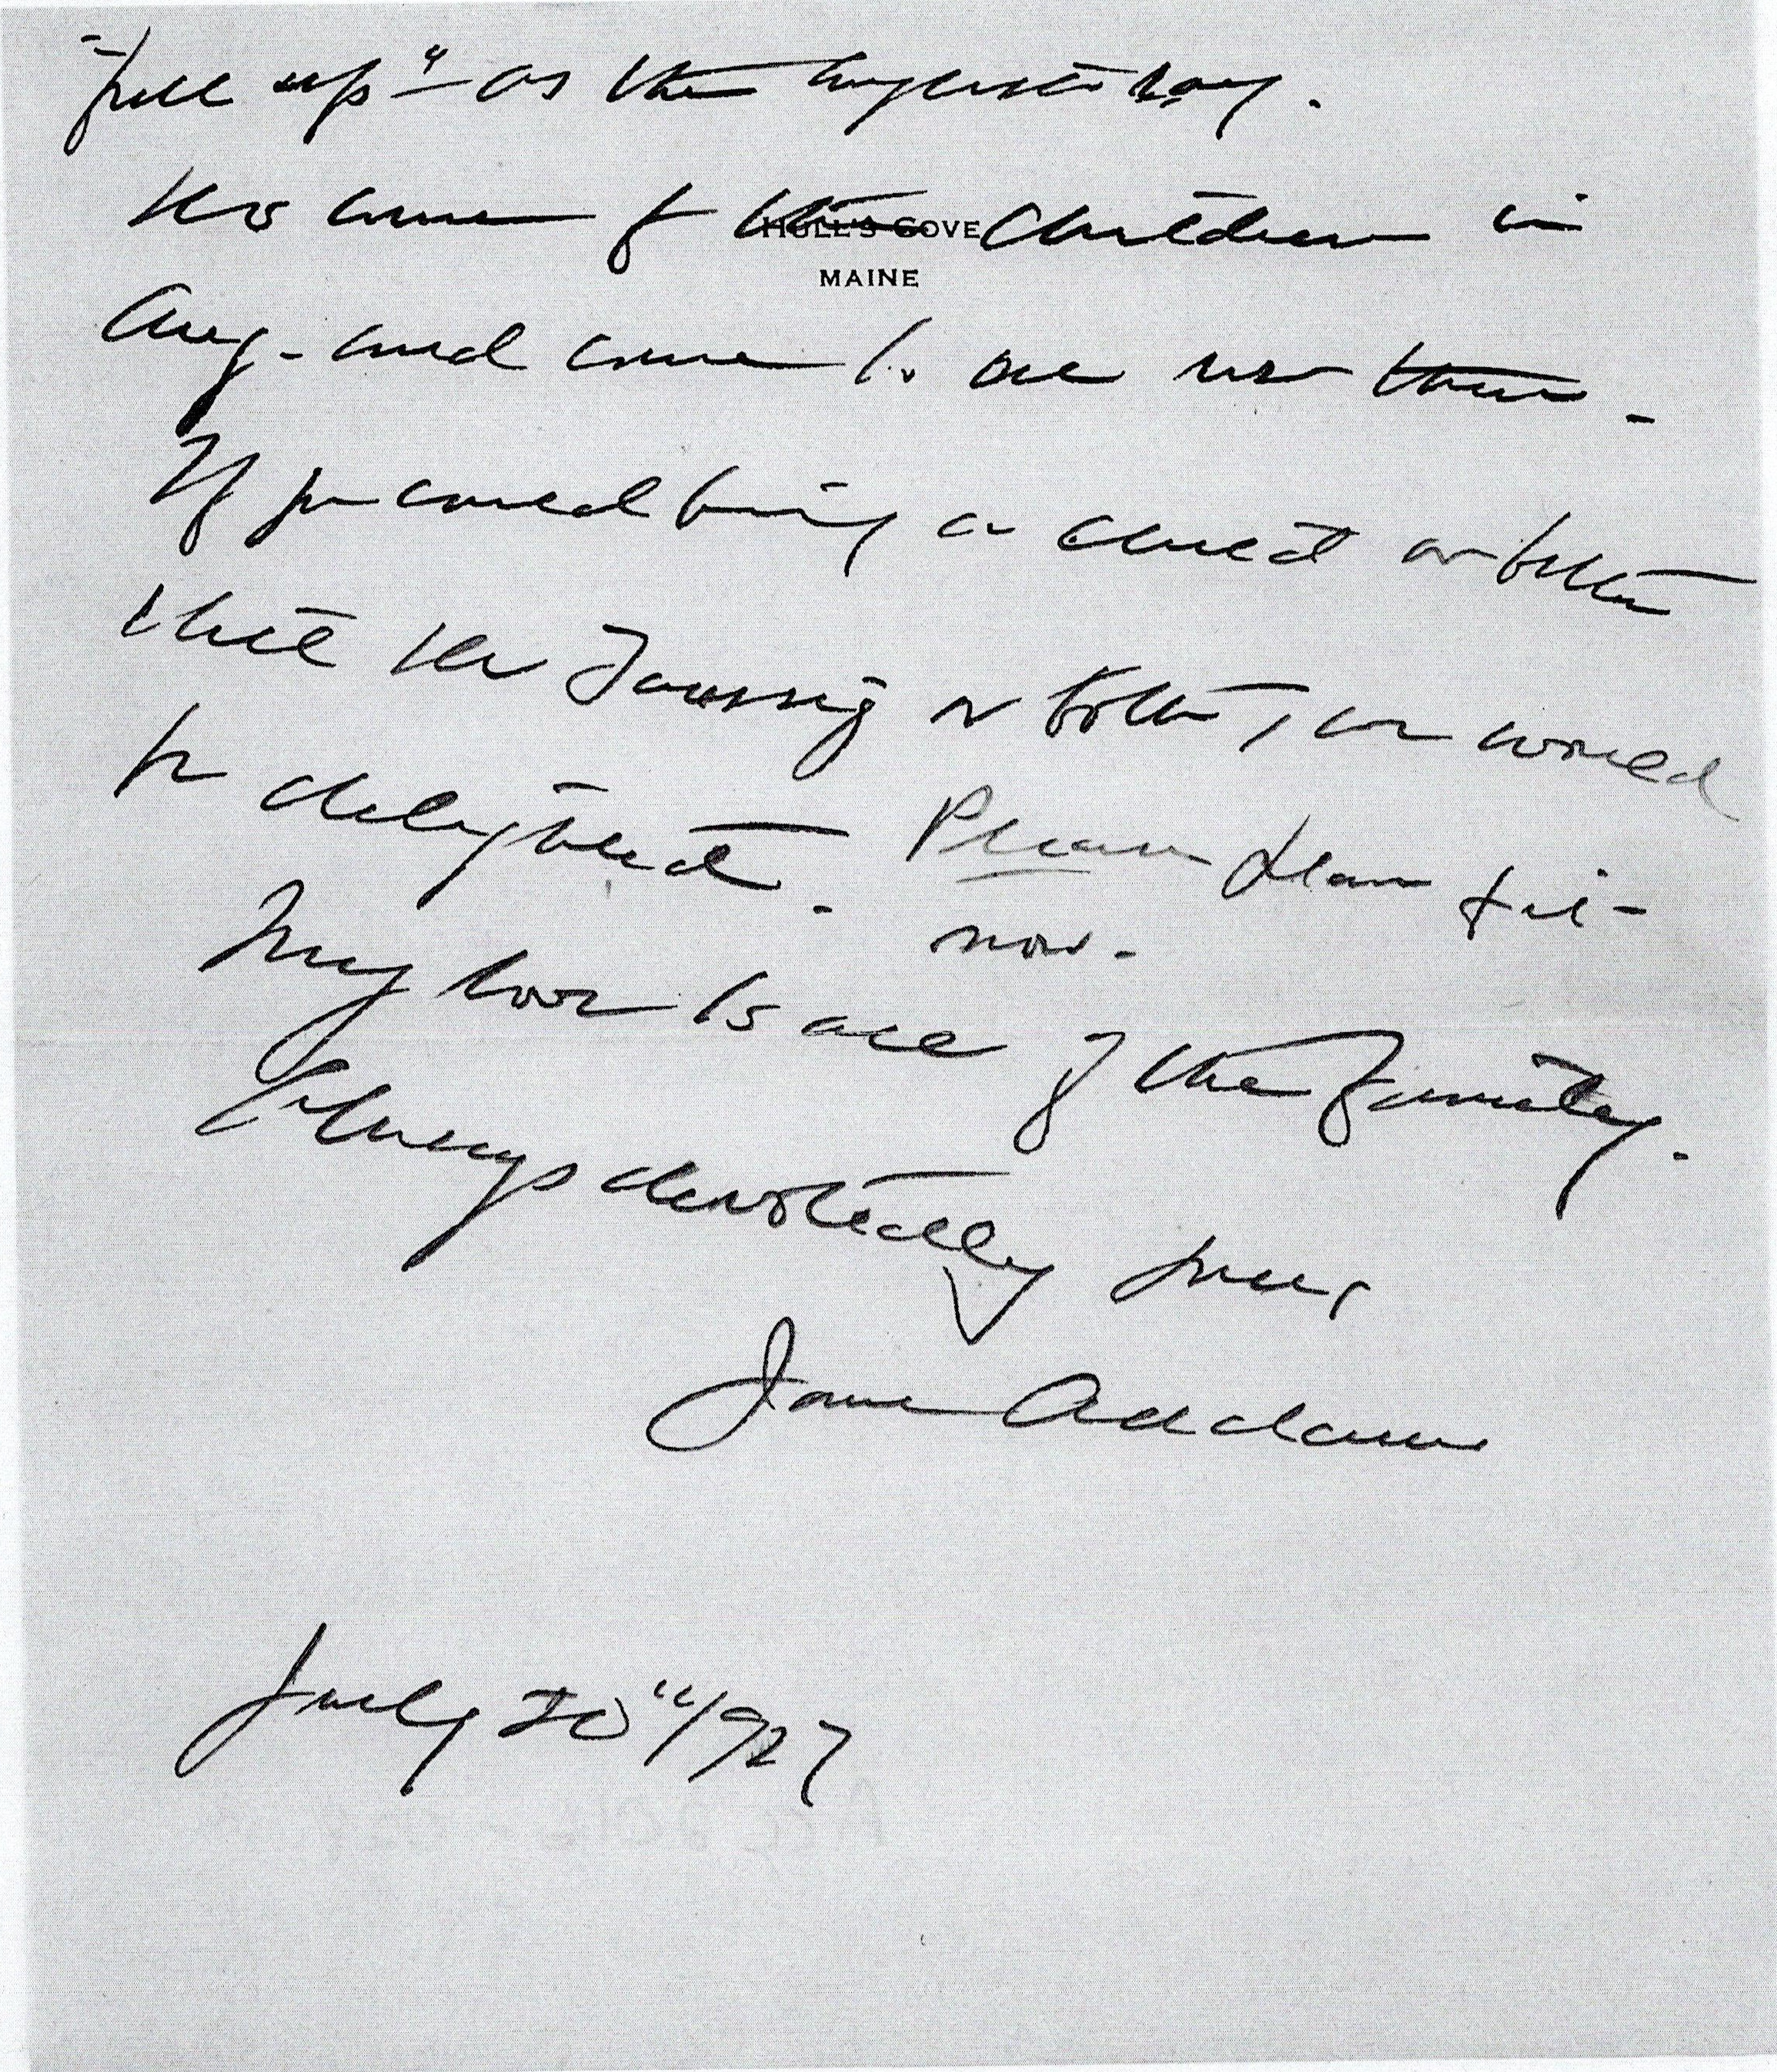 "full up" as the English say.
HULL'S COVE
of the children in
MAINE
Aug - and come to see us then -
If you could bring a child or both
while Mr Taussig or both, we would
be delighted. Please plan for it -
now.
My love to all of the family.
Always devotedly yours
Jane Addams
July 20" 1927